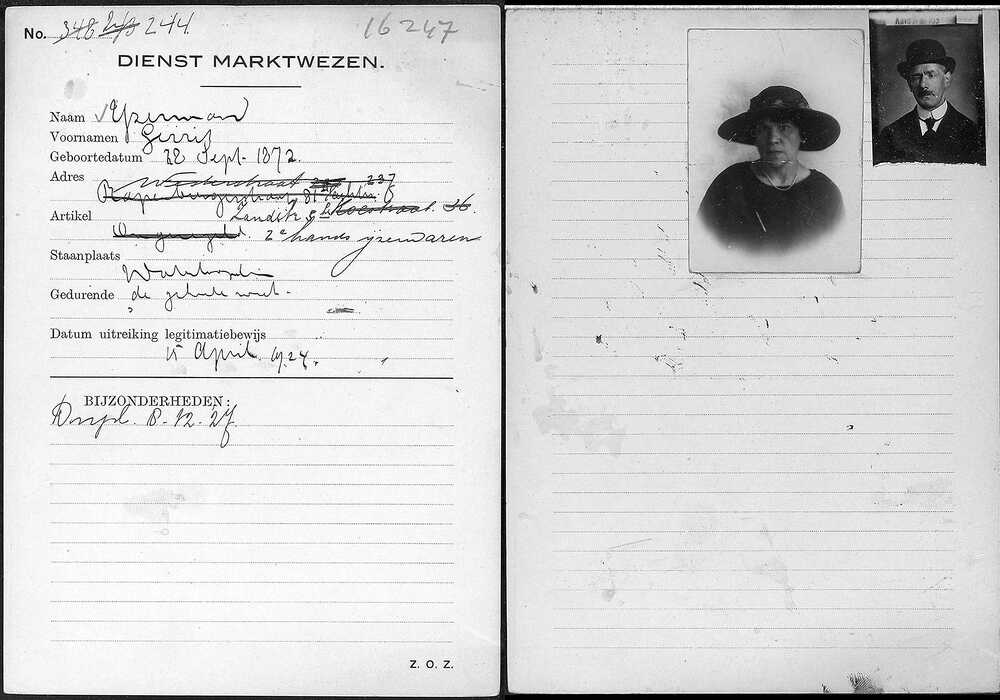 No. 348 2/3 244
16247
DIENST MARKTWEZEN.
Naam IJzerman
Voornamen Gerrit
Geboortedatum 28 Sept. 1872.
Adres Weesperstraat 237
Rapenburgerstraat 81
Artikel Zandstr 36
2e hands ijzerwaren
Staanplaats
Waterlooplein
Gedurende de geheele week.
Datum uitreiking legitimatiebewijs
15 April 1924.
BIJZONDERHEDEN:
8-12-27
Z. O. Z.